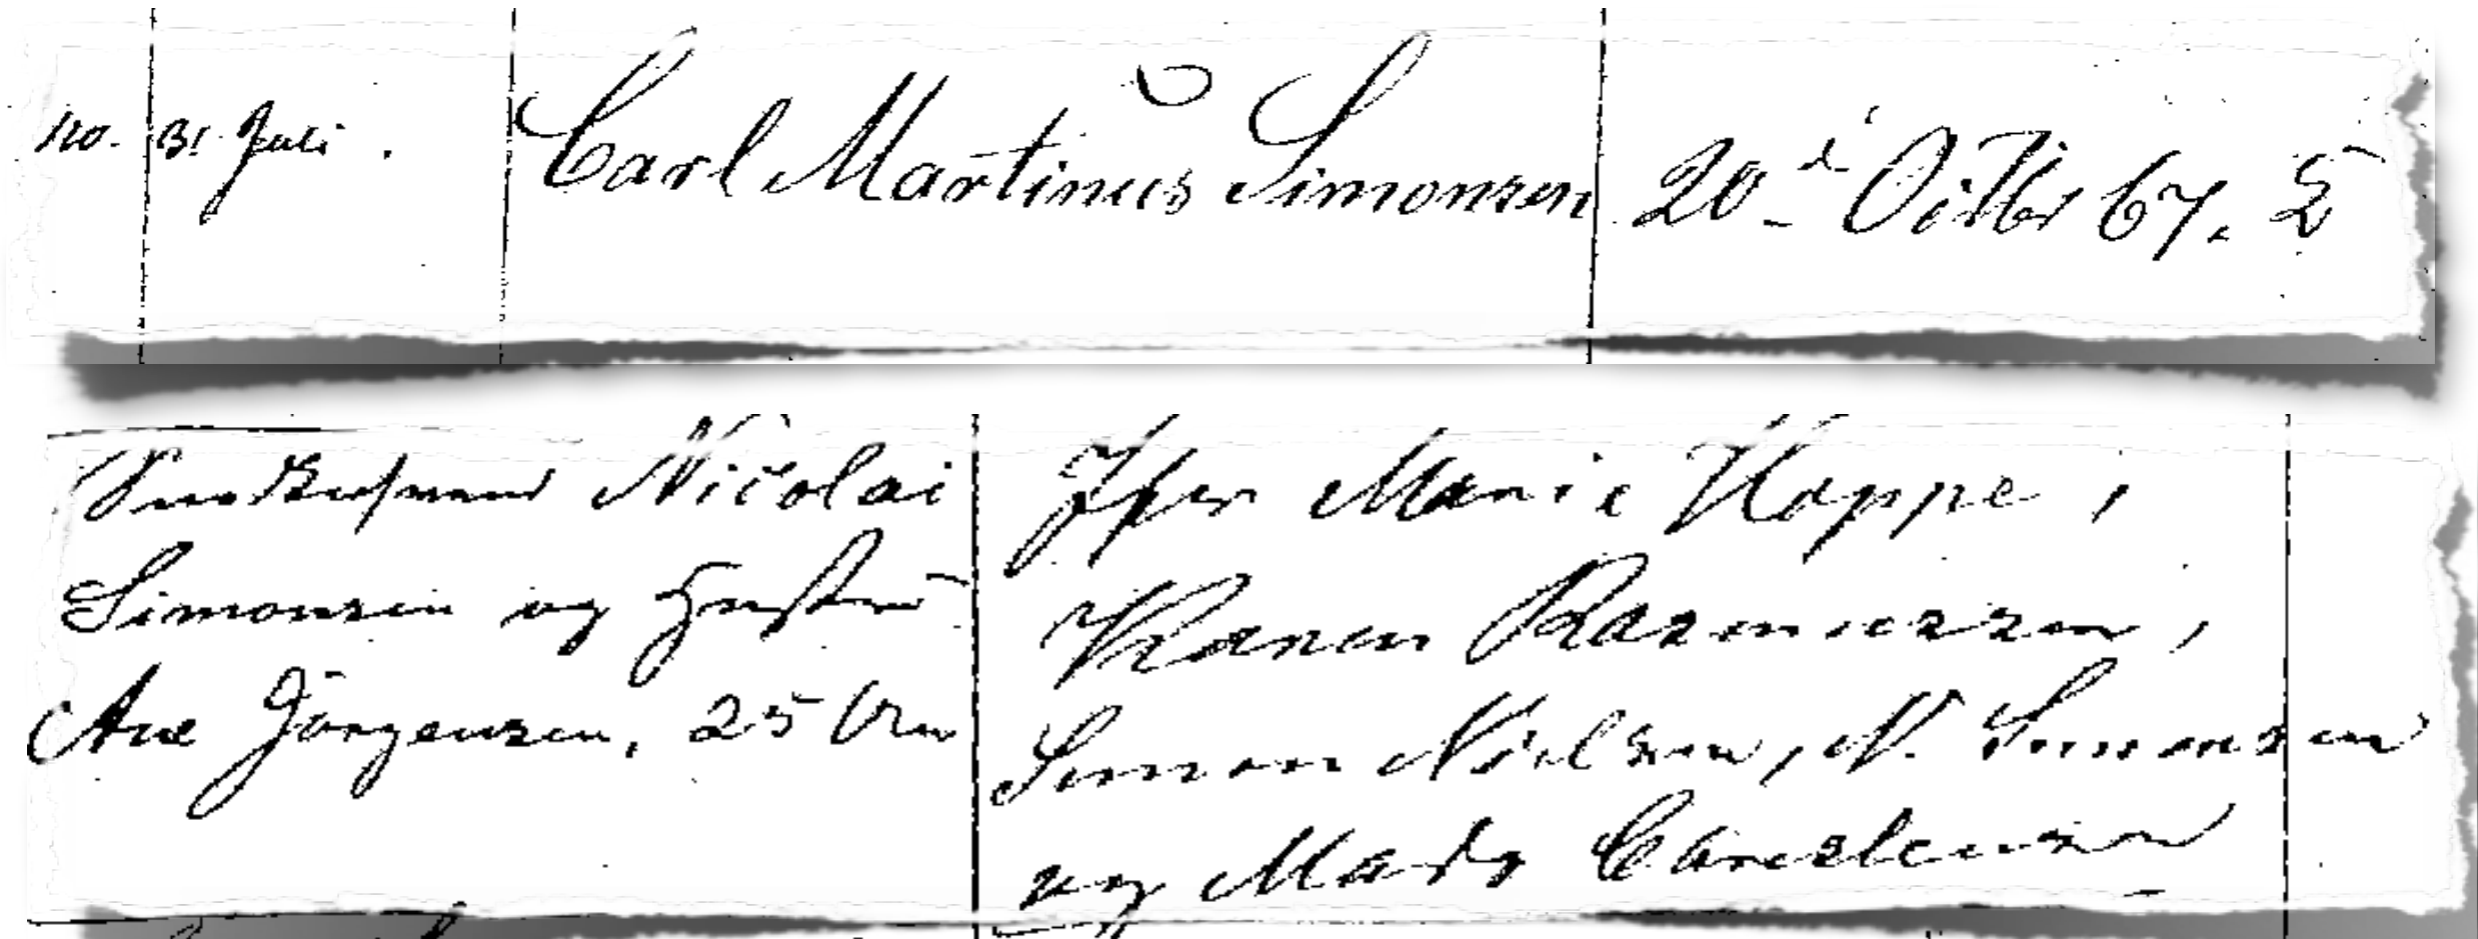 110. 31 Juli. Carl Martinus Simonsen 20 d Octbr 67.
Nicolai
Simonsen og Hustru
Ane Jörgensen, 25 Aar
Jfr Marie Kappe,
Karen Rasmussen,
Simon Nielsen, N. Simonsen
og Mads Carstensen